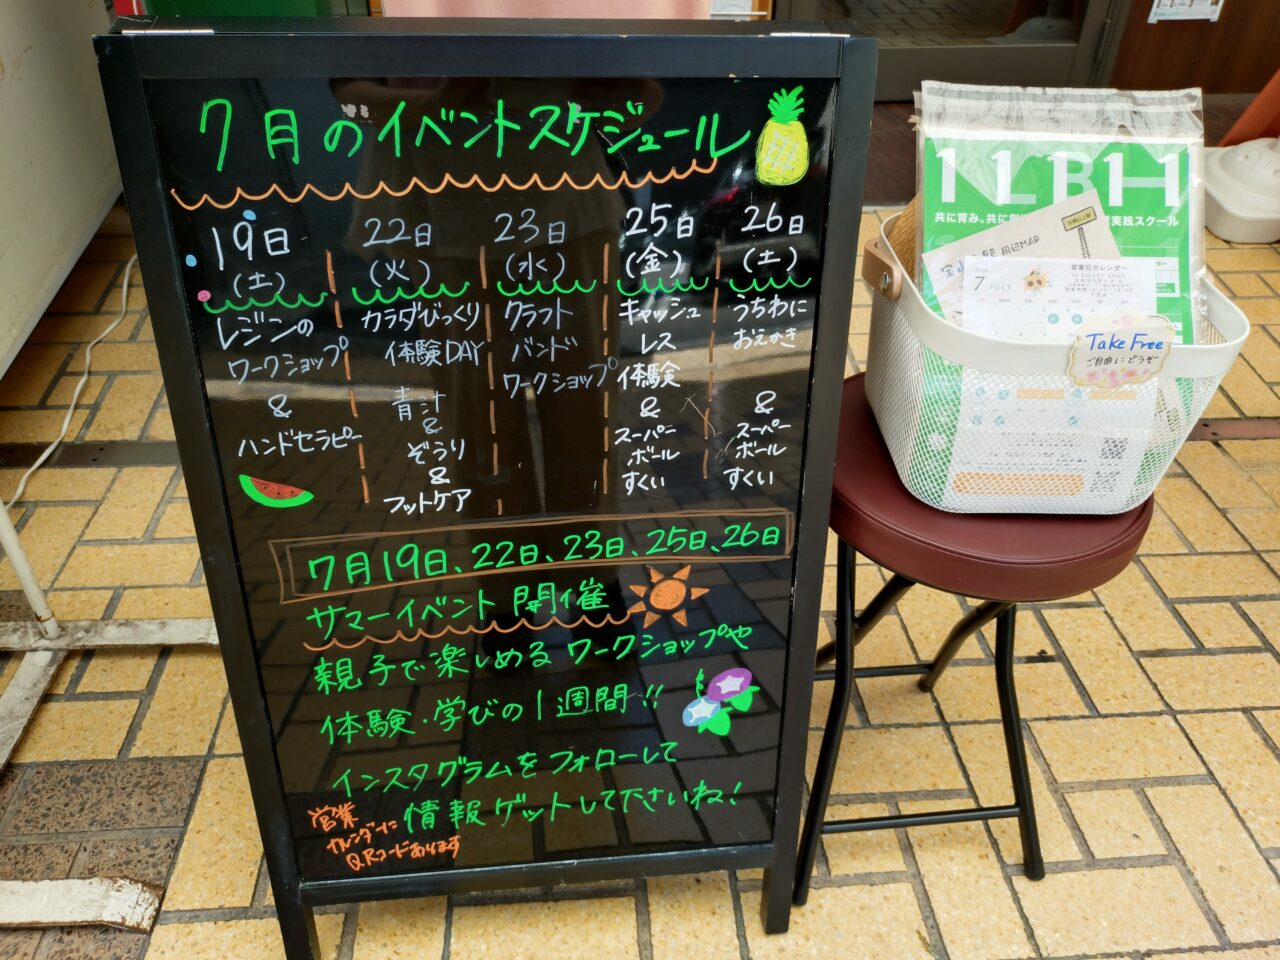 7月のイベントスケジュール
19日
(土)
レジンの
ワークショップ
&
ハンドセラピー
22日
(火)
カラダびっくり
体験DAY
青汁
&
ぞうり
&
フットケア
23日
(水)
クラフト
バンド
ワークショップ
25日
(金)
キャッシュ
レス
体験
&
スーパー
ボール
すくい
26日
(土)
うちわに
おえかき
&
スーパー
ボール
すくい
7月19日、22日、23日、25日、26日
サマーイベント開催
親子で楽しめるワークショップや
体験・学びの1週間!!
インスタグラムをフォローして
情報ゲットして下さいね!
営業
カレンダーに
QRコードあります
共に育み、共に創
営実践スクール
周辺MAP
7 JULY
営業日カレンダー
Take Free
ご自由にどうぞ